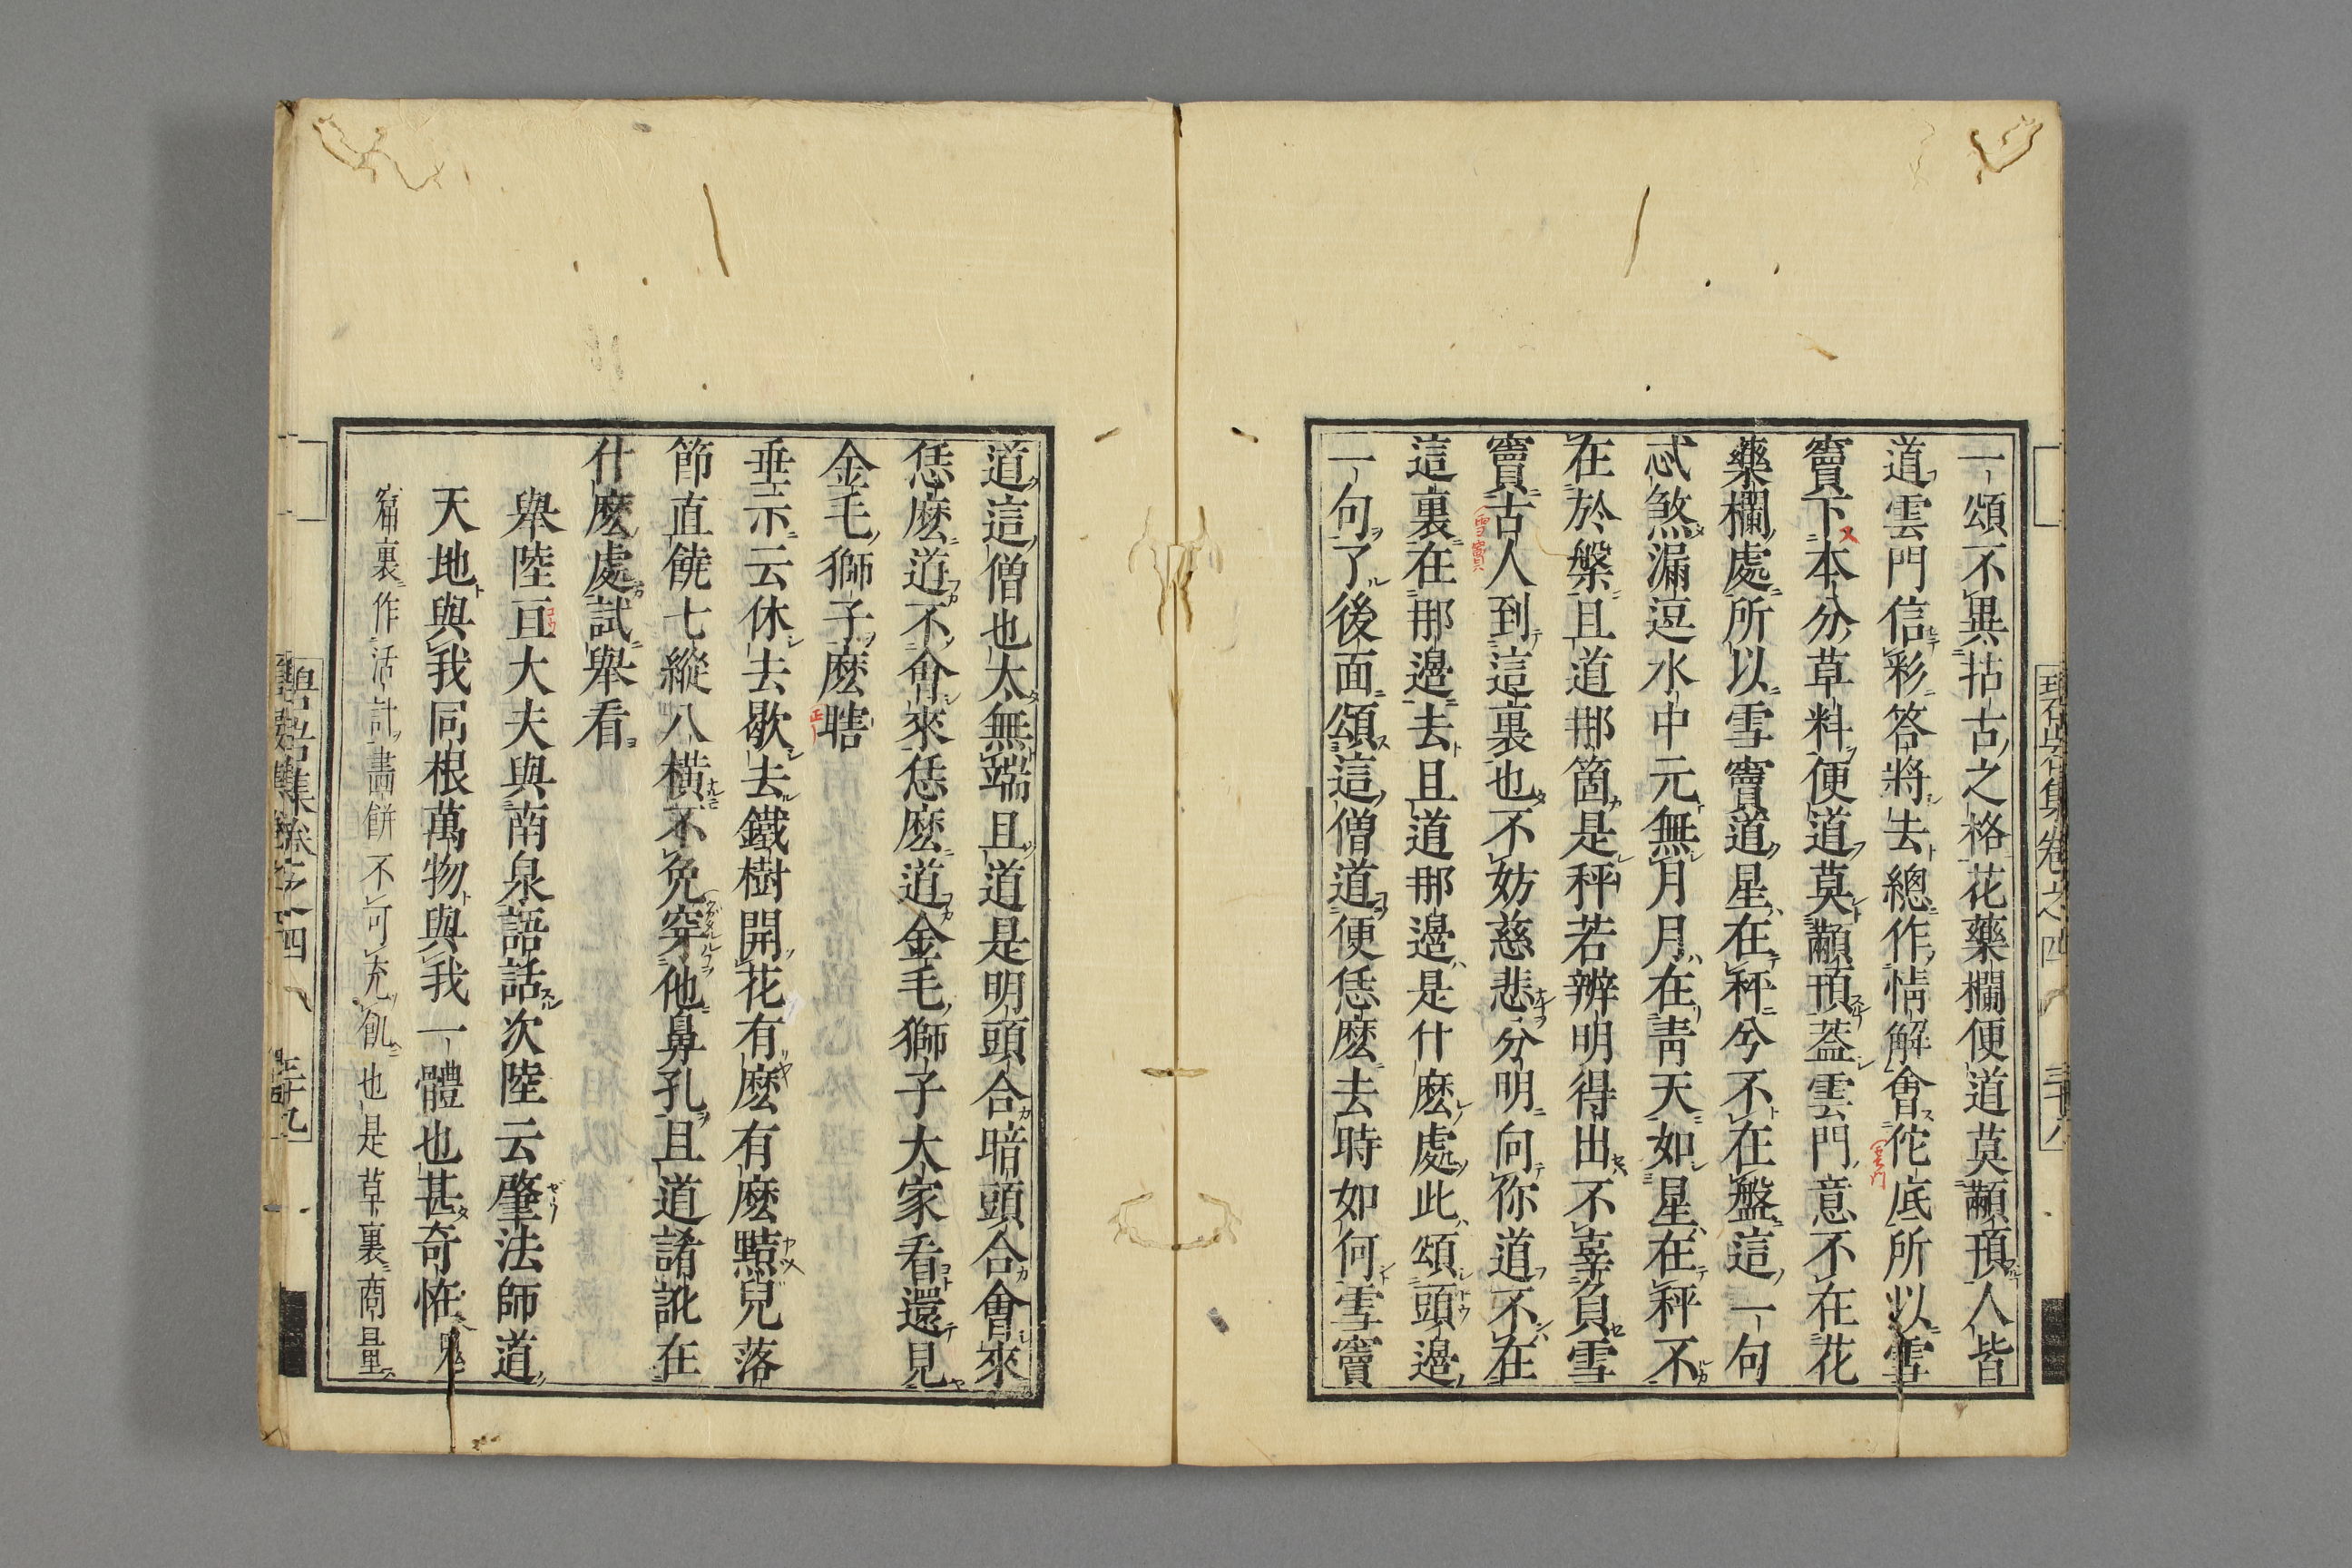 一頌不異拈古之格花藥欄便道莫顢頇人皆
道雲門信彩答將去總作情解會佗底所以雪
竇下本分草料便道莫顢頇蓋雲門意不在花
藥欄處所以雪竇道星在秤兮不在盤這一句
忒煞漏逗水中元無月月在靑天如星在秤不
在於槃且道那箇是秤若辨明得出不辜負雪
竇古人到這裏也不妨慈悲分明向你道不在
這裏在那邊去且道那邊是什麽處此頌頭邊
一句了後面頌這僧道便恁麽去時如何雪竇
道這僧也太無端且道是明頭合暗頭合會來
恁麽道不會來恁麽道金毛獅子大家看還見
金毛獅子麽瞎
垂示云休去歇去鐵樹開花有麽有麽黠兒落
節直饒七縱八橫不免穿他鼻孔且道誵訛在
什麽處試舉看
舉陸亘大夫與南泉語話次陸云肇法師道
天地與我同根萬物與我一體也甚奇恠鬼
窟裏作活計畫餅不可充飢也是草裏商量
碧岩集卷之四
三十九